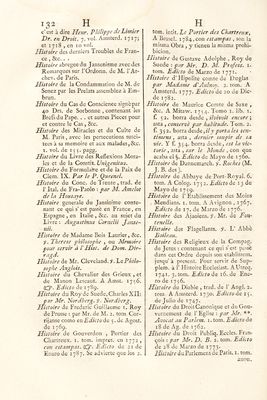 132 H H
c'est à dire Heur. Philippe de Limier
Dr. en Droit. 7. vol. Amsterd. 1717;
et 1718, en 10 vol.
Histoire des derniers Troubles de France, &c.
Histoire abregée du Jansenisme avec des
Remarques sur l'Ordonn. de M. l'Archev. de Paris.
Histoire de la Condamnation de M. de
Senez par les Prelats assemblés à Embrun.
Histoire du Cas de Conscience signé par
40 Drs. de Sorbonne, contenant les
Brefs du Pape... et autres Pieces pour
et contre le Cas, &c.
Histoire des Miracles et du Culte de
M. Paris, avec les persecutions suscitées
à sa memoire et aux malades, &c.
1. vol. de 154 pagg.
Histoire du Livre des Reflexions Morales
et de la Constit. Unigenitus.
Histoire du Formulaire et de la Paix de
Clem. IX. Par le P. Quesnel.
Histoire du Conc. de Trente, trad. de
F. Ital. de Fra-Paolo: par M. Amelot
de la Houssaye.
Histoire generale du Jansenisme contenant
ce qui s'est passé en France, en
Espagne, en Italie, &c. au sujet du
Livre: Augustinus Cornelii Jansenii.
Histoire de Madame Bois Laurier, &c.
ò. Therese philosophe, ou Memoire
pour servir à l'Hist. de Dom. Dirrag.
Histoire de Mr. Cleveland. ò. Le Philosophe Anglois.
Histoire du Chevalier des Grieux, et
de Manon Lescaut. à Amst. 1756.
Edicto de 1789.
Histoire du Roy de Suède, Charles XII:
par Mr. Nordberg. ò. Nordberg.
Histoire de Frederic Guillaume I. Roy
de Prusse: par Mr. de M. 2. tom. Corrijanse
como en Edicto de 5. de Agost.
de 1769.
Histoire de Gouverdon, Portier des
Chartreux. 1. tom. impres. en 1772,
con estampas. Edicto de 21 de
Enero de 1787. Se advierte que los 2.
tom. intit. Le Portier des Chartreux,
à Brusel. 1784, con estampas, son la
misma Obra, y tienen la misma prohibicion.
Histoire de Gustave Adolphe, Roy de
Suede: par Mr. D. M. Profess. 1.
tom. Edicto de Marzo de 1771.
Histoire d'Hipolite comte de Duglas
par Madame d'Aulnoy. 2. tom. A
Amsterd. 1777. Edicto de 20 de Dic.
de 1782.
Histoire de Maurice Comte de Saxe,
&c. A Mitaw. 1754. Tomo 1. lib. 3.
f. 92. borra desde, philosofe encore;
asta, conservér par habitude. Tom. 2.
f. 352. borra desde, il y porta les sentimens,
asta, dernier soupir de la
vie. Y f. 354. borra desde, sur la vierge;
asta, sur le Monde, con que
acaba el §. Edicto de Mayo de 1760.
Histoire de Danneinarch. S. Roches (M.
J. B. des).
Histoire de l'Abbaye de Port-Royal. 6.
tom. à Colog. 1752. Edicto de 13 de
Mayo de 1759.
Histoire de l'Etablissement des Moines
Mendians. 1. tom. à Avignon. 1767.
Edicto de 21. de Marzo de 1776.
Histoire des Ajaoiens. ò. Mr. de Fontenelle.
Histoire des Flagellans. ò. L'Abbé
Boileau.
Histoire des Religieux de la Compag.
de Jesus: contenant ce qui s'est passé
dans cet Ordre depuis son etablissement
jusqu'à present. Pour servir de Supplem.
à l'Histoire Ecclesiast. A Utreq.
1741. 3. tom. Edicto de 16. de Enero
de 1756.
Histoire du Diable, trad. de l'Angl. 2.
tom. à Amsterd. 1730. Edicto de 15.
de Julio de 1745.
Histoire du Droit Canonique et du Gouvernement
de l'Eglise: par Mr. **.
Avocat au Parlement. 1. tom. Edicto de
18 de Ag. de 1762.
Histoire du Droit Publiq. Eccles. François:
par Mr. D. B. 2. tom. Edicto
de 28 de Marzo de 1773.
Histoire du Parlement de Paris. 1. tom.